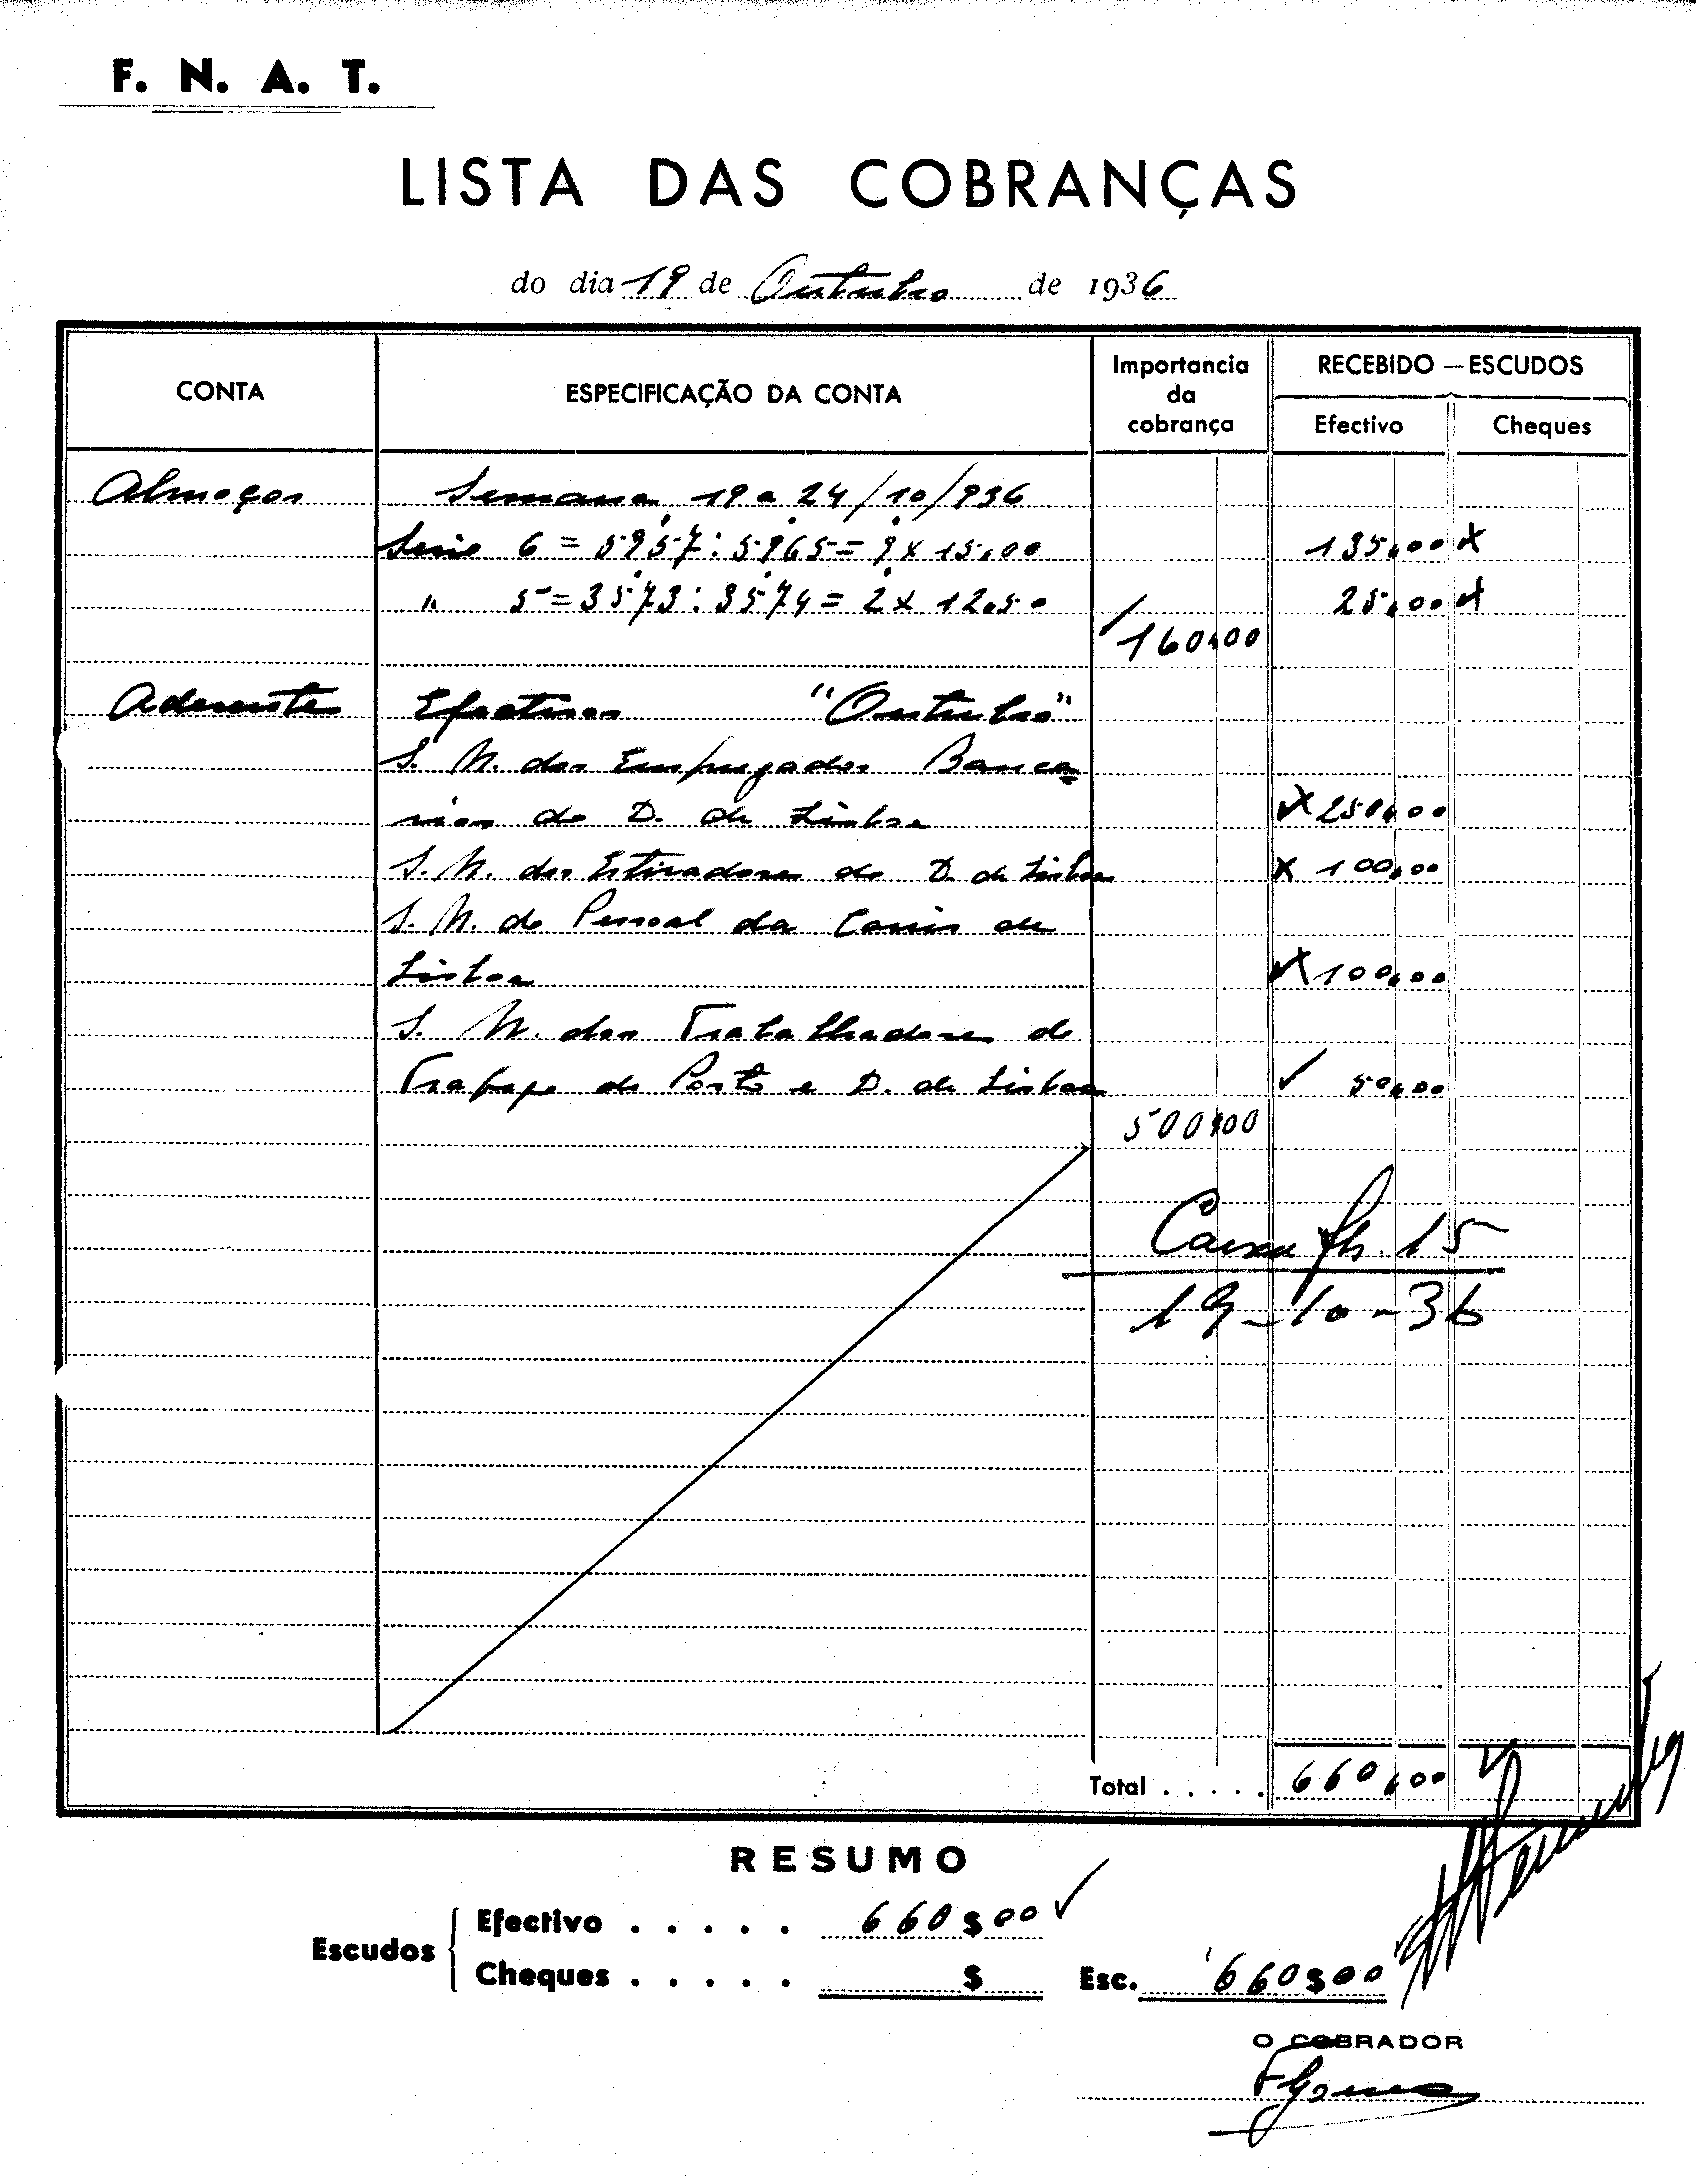 F. N. A. T.
LISTA DAS COBRANÇAS
do dia 19 de Outubro de 1936
CONTA
ESPECIFICAÇÃO DA CONTA
Importancia da cobrança
RECEBIDO — ESCUDOS
Efectivo
Cheques
Almoços Semana 19 a 24/10/936
Serie 6 = 5957 : 5965 = 9 x 15,00 135,00 x
" 5 = 3573 : 3574 = 2 x 12,50 25,00 x
160,00
Aderente Efectivos "Outubro"
S. N. dos Empregados Banca
rios do D. de Lisboa x 250,00
S. N. dos Estivadores do D. de Lisboa x 100,00
S. N. do Pessoal da Carris de
Lisboa x 100,00
S. N. dos Trabalhadores do
de Porto e D. de Lisboa ✓ 50,00
500,00
Caixa fls. 15
19-10-36
Total ..... 660,00
RESUMO
Escudos
Efectivo ..... 660$00 ✓
Cheques ..... $
Esc. 660$00
O COBRADOR